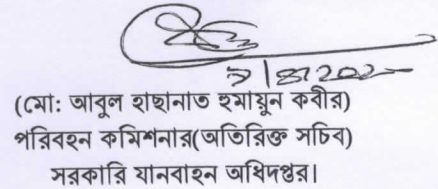 (মো: আবুল হাছানাত হুমায়ুন কবীর)
পরিবহন কমিশনার(অতিরিক্ত সচিব)
সরকারি যানবাহন অধিদপ্তর।